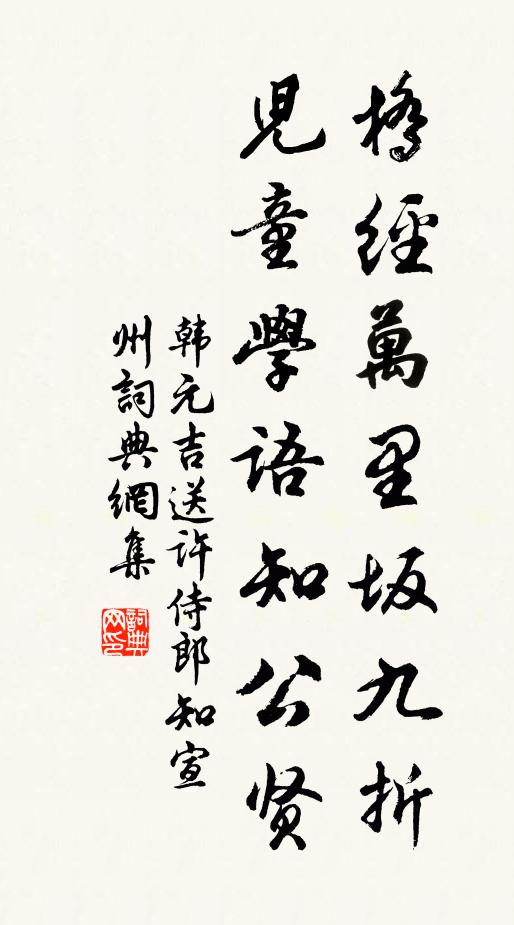 橋經萬里坂九折
兒童學語知公贤
韩元吉送许侍郎知宣
州詞典網集
詞典
网印